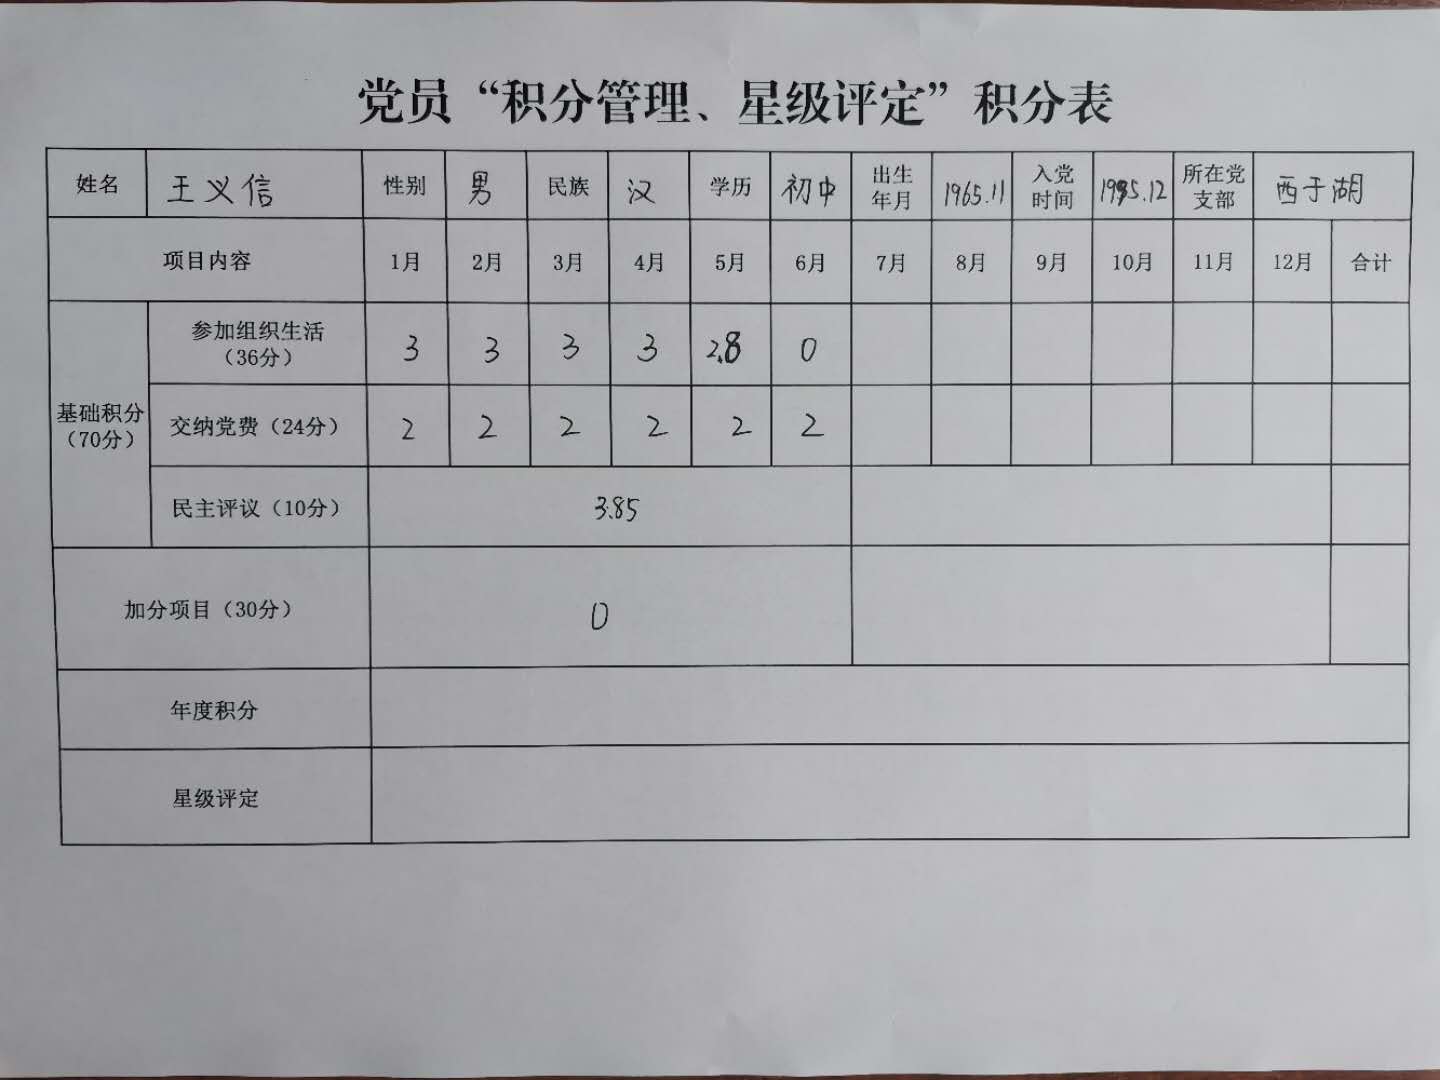 党员“积分管理、星级评定”积分表
姓名 王义信 性别 男 民族 汉 学历 初中 出生年月 1965.11 入党时间 1995.12 所在党支部 西于湖
项目内容 1月 2月 3月 4月 5月 6月 7月 8月 9月 10月 11月 12月 合计
基础积分（70分）
参加组织生活（36分） 3 3 3 3 2.8 0
交纳党费（24分） 2 2 2 2 2 2
民主评议（10分） 3.85
加分项目（30分） 0
年度积分
星级评定